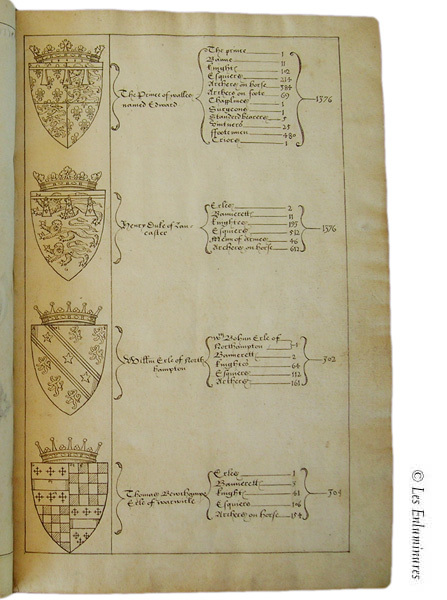 The Prince of walles
named Edward
The prince 1
11
Knightes 102
Esquiers 214
Archers on horse 384
Archers on foote 69
Chaplines 1
Surgeons 1
Standerdbearers 5
25
ffootemen 480
Criors 1
1376
Henry Duke of Lan-
caster
Erles 2
Bannerettes 11
Knightes 193
Esquiers 512
Menn of Armes 46
Archers on horse 612
1376
William Erle of North
hampton
Wm Bohun Erle of
Northampton 1
Bannerettes 2
Knightes 64
Esquiers 112
Archers 161
302
Thomas
Erle of warwicke
Erles 1
Bannerettes 5
Knightes 61
Esquiers 106
Archers on horse 154
© Les Enluminures